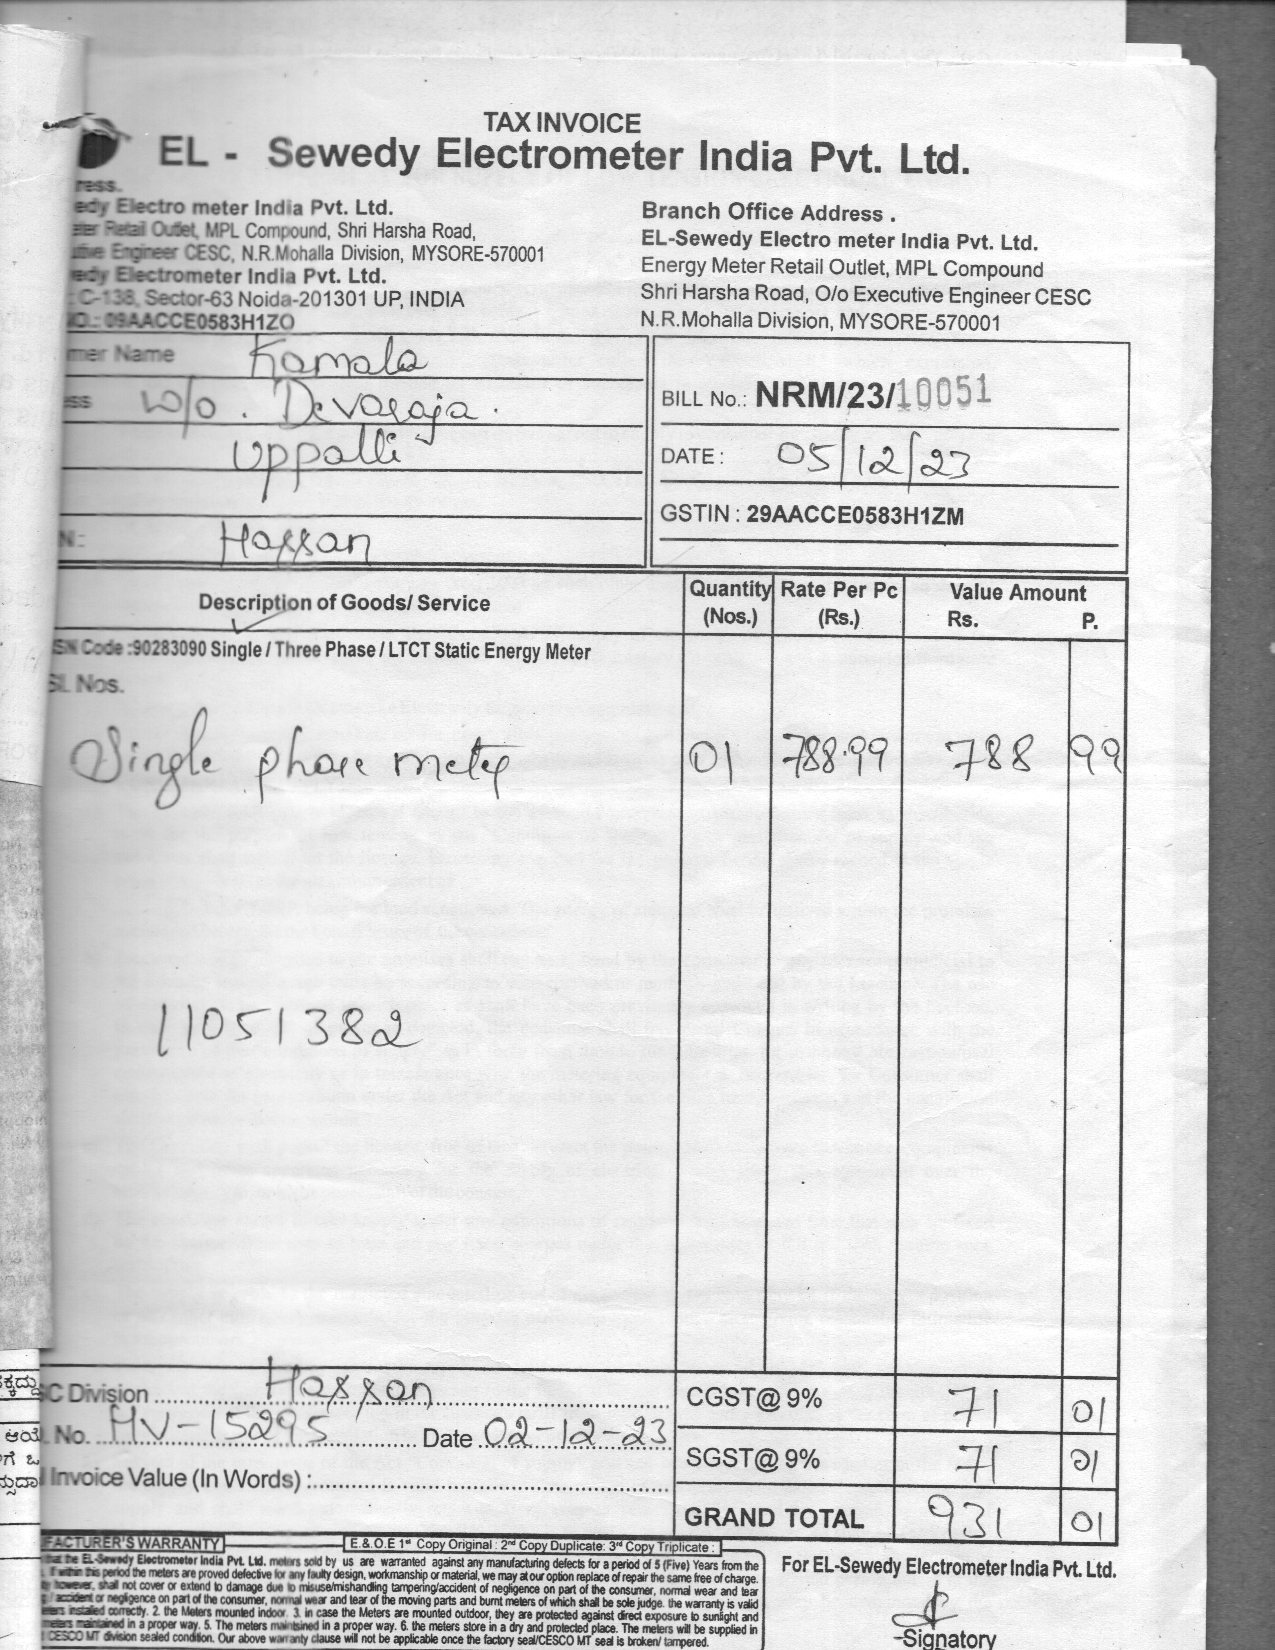 TAX INVOICE
EL - Sewedy Electrometer India Pvt. Ltd.
ress.
edy Electro meter India Pvt. Ltd.
Retail Outlet, MPL Compound, Shri Harsha Road,
Engineer CESC, N.R.Mohalla Division, MYSORE-570001
edy Electrometer India Pvt. Ltd.
C-138, Sector-63 Noida-201301 UP, INDIA
O.: 09AACCE0583H1ZO
Branch Office Address .
EL-Sewedy Electro meter India Pvt. Ltd.
Energy Meter Retail Outlet, MPL Compound
Shri Harsha Road, O/o Executive Engineer CESC
N.R.Mohalla Division, MYSORE-570001
mer Name Kamala
ess W/o . Devaraja .
Uppalli
N : Hassan
BILL No.: NRM/23/10051
DATE : 05/12/23
GSTIN : 29AACCE0583H1ZM
Description of Goods/ Service Quantity (Nos.) Rate Per Pc (Rs.) Value Amount Rs. P.
SN Code :90283090 Single / Three Phase / LTCT Static Energy Meter
Sl. Nos.
Single phase meter 01 788.99 788 99
11051382
SC Division Hassan
No. HV-15295 Date 02-12-23
Invoice Value (In Words) :
CGST@ 9% 71 01
SGST@ 9% 71 01
GRAND TOTAL 931 01
FACTURER'S WARRANTY E.& O.E 1st Copy Original : 2nd Copy Duplicate: 3rd Copy Triplicate :
that the EL-Sewedy Electrometer India Pvt. Ltd. meters sold by us are warranted against any manufacturing defects for a period of 5 (Five) Years from the
If within this period the meters are proved defective for any faulty design, workmanship or material, we may at our option replace of repair the same free of charge.
however, shall not cover or extend to damage due to misuse/mishandling tampering/accident of negligence on part of the consumer, normal wear and tear
accident or negligence on part of the consumer, normal wear and tear of the moving parts and burnt meters of which shall be sole judge. the warranty is valid
installed correctly. 2. the Meters mounted indoor. 3. in case the Meters are mounted outdoor, they are protected against direct exposure to sunlight and
maintained in a proper way. 5. The meters maintsined in a proper way. 6. the meters store in a dry and protected place. The meters will be supplied in
CESCO MT division sealed condition. Our above warranty clause will not be applicable once the factory seal/CESCO MT seal is broken/ tampered.
For EL-Sewedy Electrometer India Pvt. Ltd.
Signatory